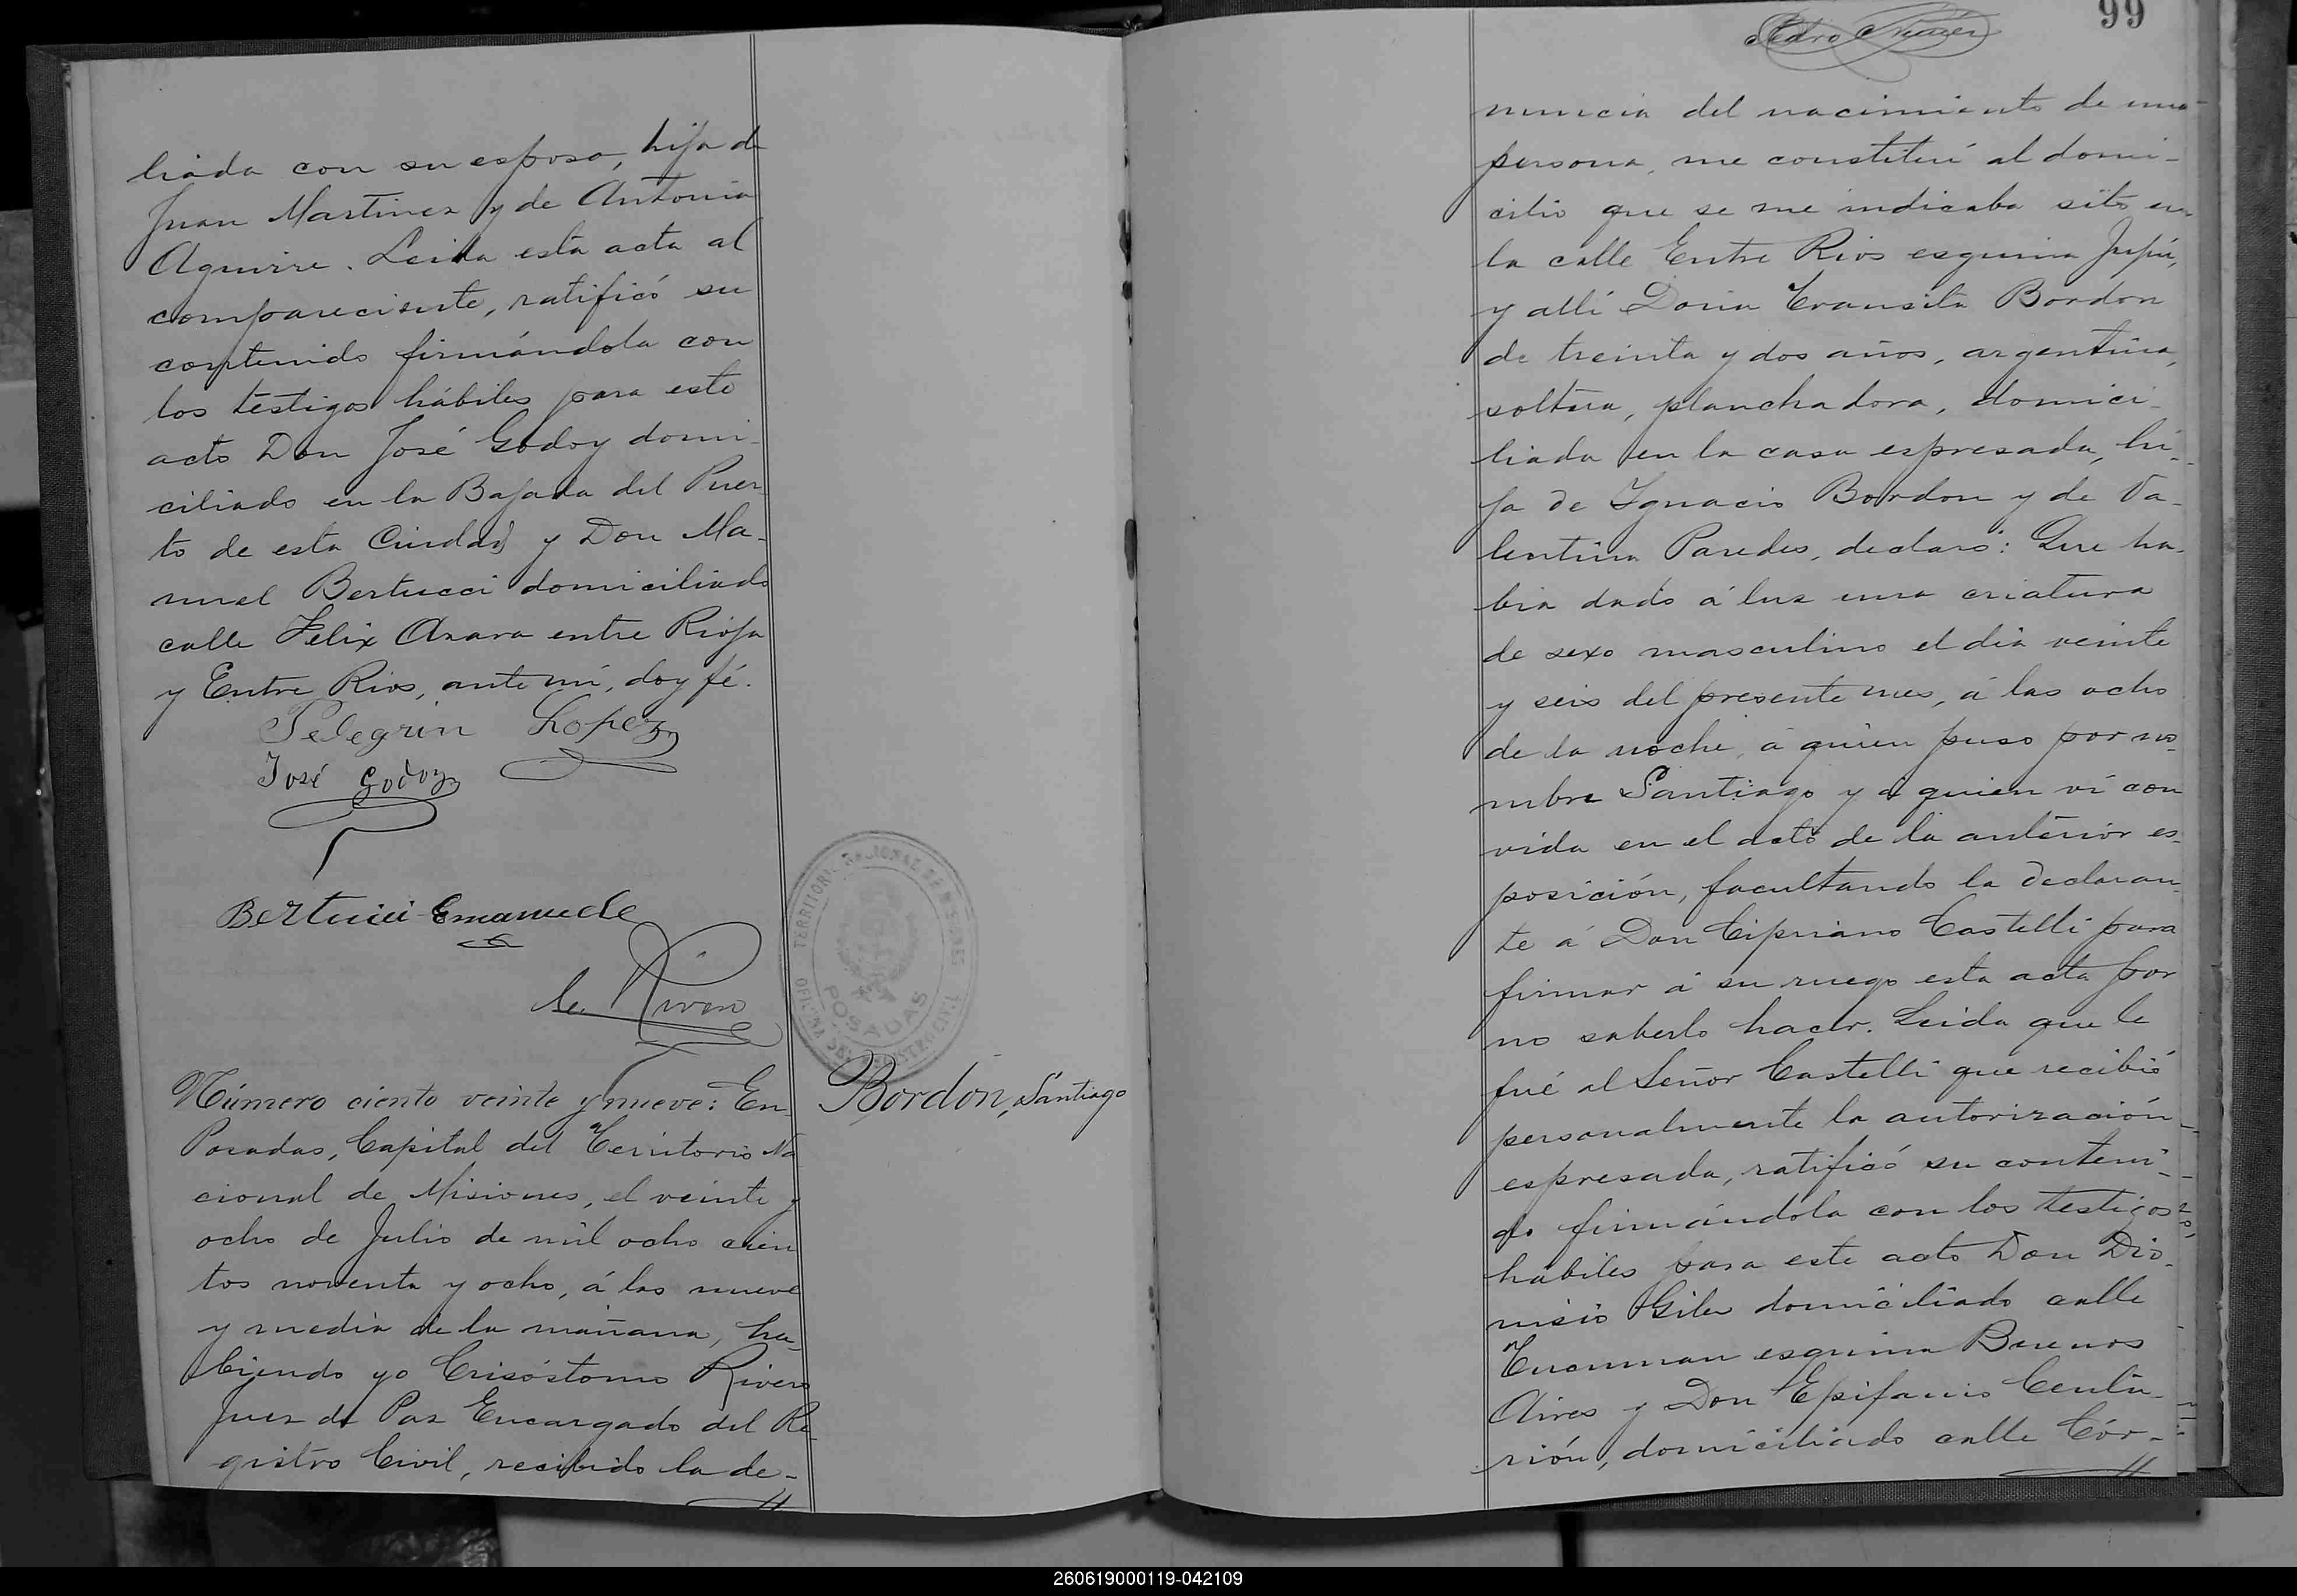 liada con su esposo, hija de
Juan Martinez y de Antonia
Aguirre. Leida esta acta al
compareciente, ratificó su
contenido firmándola con
los testigos hábiles para este
acto Don José Godoy domi-
ciliado en la Bajada del Puer-
to de esta Ciudad y Don Ma-
nuel Bertucci domiciliado
calle Felix Azara entre Rioja
y Entre Rios, ante mí, doy fé.
Pelegrin Lopez
José Godoy
Bertucci Emanuele
C. Rivero
TERRITORIO NACIONAL DE MISIONES
OFICINA DEL REGISTRO CIVIL
POSADAS
Número ciento veinte y nueve: En
Posadas, Capital del Territorio Na
cional de Misiones, el veinte y
ocho de Julio de mil ocho cien
tos noventa y ocho, á las nueve
y media de la mañana, ha-
biendo yo Crisóstomo Rivero
Juez de Paz Encargado del Re-
gistro Civil, recibido la de-
Bordón, Santiago
99
Pedro
nuncia del nacimiento de una
persona, me constituí al domi-
cilio que se me indicaba sito en
la calle Entre Rios esquina Jujúi,
y allí Doña Transita Bordon
de treinta y dos años, argentina,
soltera, planchadora, domici-
liada en la casa espresada, hi-
ja de Ygnacio Bordon y de Va-
lentina Paredes, declaró: Que ha-
bia dado á luz una criatura
de sexo masculino el dia veinte
y seis del presente mes, á las ocho
de la noche, á quien puso por no-
mbre Santiago y á quien ví con
vida en el acto de la anterior es-
posición, facultando la declaran-
te á Don Cipriano Castelli para
firmar á su ruego esta acta por
no saberlo hacer. Leida que le
fué al Señor Castelli que recibió
personalmente la autorización
espresada, ratificó su conteni-
do firmándola con los testigos
hábiles para este acto Don Dio-
nisio Giler domiciliado calle
Tucuman esquina Buenos
Aires y Don Epifanio Centu-
rión, domiciliado calle Cór-
260619000119-042109